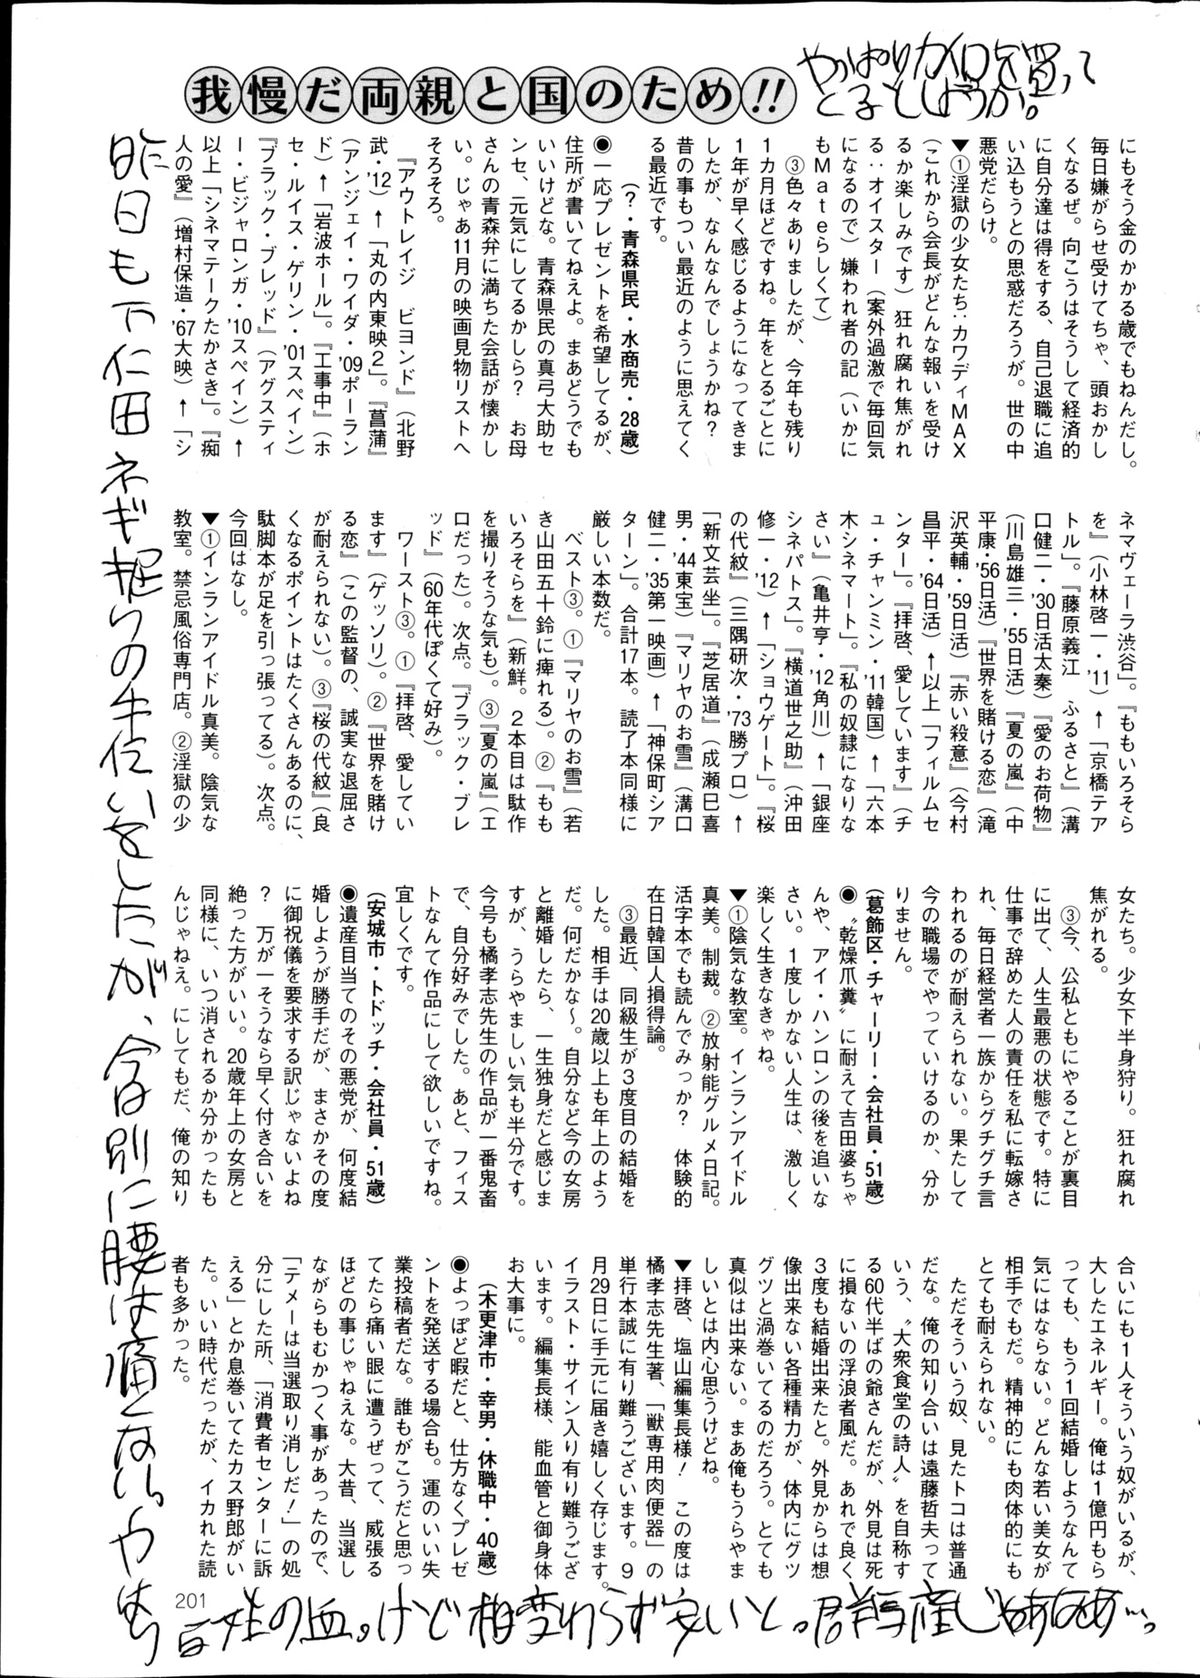 我慢だ両親と国のため!!
やっぱりカイロを買って
とよとしようか。
にもそう金のかかる歳でもねんだし。
毎日嫌がらせ受けてちゃ、頭おかし
くなるぜ。向こうはそうして経済的
に自分達は得をする、自己退職に追
い込もうとの思惑だろうが。世の中
悪党だらけ。
▼①淫獄の少女たち:カワディMAX
(これから会長がどんな報いを受け
るか楽しみです)狂れ腐れ焦がれ
る:オイスター(案外過激で毎回気
になるので)嫌われ者の記(いかに
もMateらしくて)
③色々ありましたが、今年も残り
1カ月ほどですね。年をとるごとに
1年が早く感じるようになってきま
したが、なんなんでしょうかね?
昔の事もつい最近のように思えてく
る最近です。
(?・青森県民・水商売・28歳)
◉一応プレゼントを希望してるが、
住所が書いてねえよ。まあどうでも
いいけどな。青森県民の真弓大助セ
ンセ、元気にしてるかしら? お母
さんの青森弁に満ちた会話が懐かし
い。じゃあ11月の映画見物リストへ
そろそろ。
『アウトレイジ ビヨンド』(北野
武・'12)↑「丸の内東映2」。『菖蒲』
(アンジェイ・ワイダ・'09ポーラン
ド)↑「岩波ホール」。『工事中』(ホ
セ・ルイス・ゲリン・'01スペイン)
『ブラック・ブレッド』(アグスティ
ー・ビジャロンガ・'10スペイン)↑
以上「シネマテークたかさき」。『痴
人の愛』(増村保造・'67大映)↑「シ
ネマヴェーラ渋谷」。『ももいろそら
を』(小林啓一・'11)↑「京橋テア
トル」。『藤原義江 ふるさと』(溝
口健二・'30日活太秦)『愛のお荷物』
(川島雄三・'55日活)『夏の嵐』(中
平康・'56日活)『世界を賭ける恋』(滝
沢英輔・'59日活)『赤い殺意』(今村
昌平・'64日活)↑以上「フィルムセ
ンター」。『拝啓、愛しています』(チ
ュ・チャンミン・'11韓国)↑「六本
木シネマート」。『私の奴隷になりな
さい』(亀井亨・'12角川)↑「銀座
シネパトス」。『横道世之助』(沖田
修一・'12)↑「ショウゲート」。『桜
の代紋』(三隅研次・'73勝プロ)↑
「新文芸坐」。『芝居道』(成瀬巳喜
男・'44東宝)『マリヤのお雪』(溝口
健二・'35第一映画)↑「神保町シア
ターン」。合計17本。読了本同様に
厳しい本数だ。
ベスト③。①『マリヤのお雪』(若
き山田五十鈴に痺れる)。②『もも
いろそらを』(新鮮。2本目は駄作
を撮りそうな気も)。③『夏の嵐』(エ
ロだった)。次点。『ブラック・ブレ
ッド』(60年代ぽくて好み)。
ワースト③。①『拝啓、愛してい
ます』(ゲッソリ)。②『世界を賭け
る恋』(この監督の、誠実な退屈さ
が耐えられない)。③『桜の代紋』(良
くなるポイントはたくさんあるのに、
駄脚本が足を引っ張ってる)。次点。
今回はなし。
▼①インランアイドル真美。陰気な
教室。禁忌風俗専門店。②淫獄の少
女たち。少女下半身狩り。狂れ腐れ
焦がれる。
③今、公私ともにやることが裏目
に出て、人生最悪の状態です。特に
仕事で辞めた人の責任を私に転嫁さ
れ、毎日経営者一族からグチグチ言
われるのが耐えられない。果たして
今の職場でやっていけるのか、分か
りません。
(葛飾区・チャーリー・会社員・51歳)
◉〝乾燥爪糞〟に耐えて吉田婆ちゃ
んや、アイ・ハンロンの後を追いな
さい。1度しかない人生は、激しく
楽しく生きなきゃね。
▼①陰気な教室。インランアイドル
真美。制裁。②放射能グルメ日記。
活字本でも読んでみっか? 体験的
在日韓国人損得論。
③最近、同級生が3度目の結婚を
した。相手は20歳以上も年上のよう
だ。何だかな〜。自分など今の女房
と離婚したら、一生独身だと感じま
すが、うらやましい気も半分です。
今号も橘孝志先生の作品が一番鬼畜
で、自分好みでした。あと、フィス
トなんて作品にして欲しいですね。
宜しくです。
(安城市・トドッチ・会社員・51歳)
◉遺産目当てのその悪党が、何度結
婚しようが勝手だが、まさかその度
に御祝儀を要求する訳じゃないよね
? 万が一そうなら早く付き合いを
絶った方がいい。20歳年上の女房と
同様に、いつ消されるか分かったも
んじゃねえ。にしてもだ、俺の知り
合いにも1人そういう奴がいるが、
大したエネルギー。俺は1億円もら
っても、もう1回結婚しようなんて
気にはならない。どんな若い美女が
相手でもだ。精神的にも肉体的にも
とても耐えられない。
ただそういう奴、見たトコは普通
だな。俺の知り合いは遠藤哲夫って
いう、〝大衆食堂の詩人〟を自称す
る60代半ばの爺さんだが、外見は死
に損ないの浮浪者風だ。あれで良く
3度も結婚出来たと。外見からは想
像出来ない各種精力が、体内にグツ
グツと渦巻いてるのだろう。とても
真似は出来ない。まあ俺もうらやま
しいとは内心思うけどね。
▼拝啓、塩山編集長様! この度は
橘孝志先生著、「獣専用肉便器」の
単行本誠に有り難うございます。9
月29日に手元に届き嬉しく存じます。
イラスト・サイン入り有り難うござ
います。編集長様、能血管と御身体
お大事に。
(木更津市・幸男・休職中・40歳)
◉よっぽど暇だと、仕方なくプレゼ
ントを発送する場合も。運のいい失
業投稿者だな。誰もがこうだと思っ
てたら痛い眼に遭うぜって、威張る
ほどの事じゃねえな。大昔、当選し
ながらもむかつく事があったので、
「テメーは当選取り消しだ!」の処
分にした所、「消費者センターに訴
える」とか息巻いてたカス野郎がい
た。いい時代だったが、イカれた読
者も多かった。
昨日も下仁田ネギ掘りの手伝いをしたが、今は別に腰は痛くない。やはり
百姓の血。けど相変わらず安いと。群馬産じゃあなあ…。
201